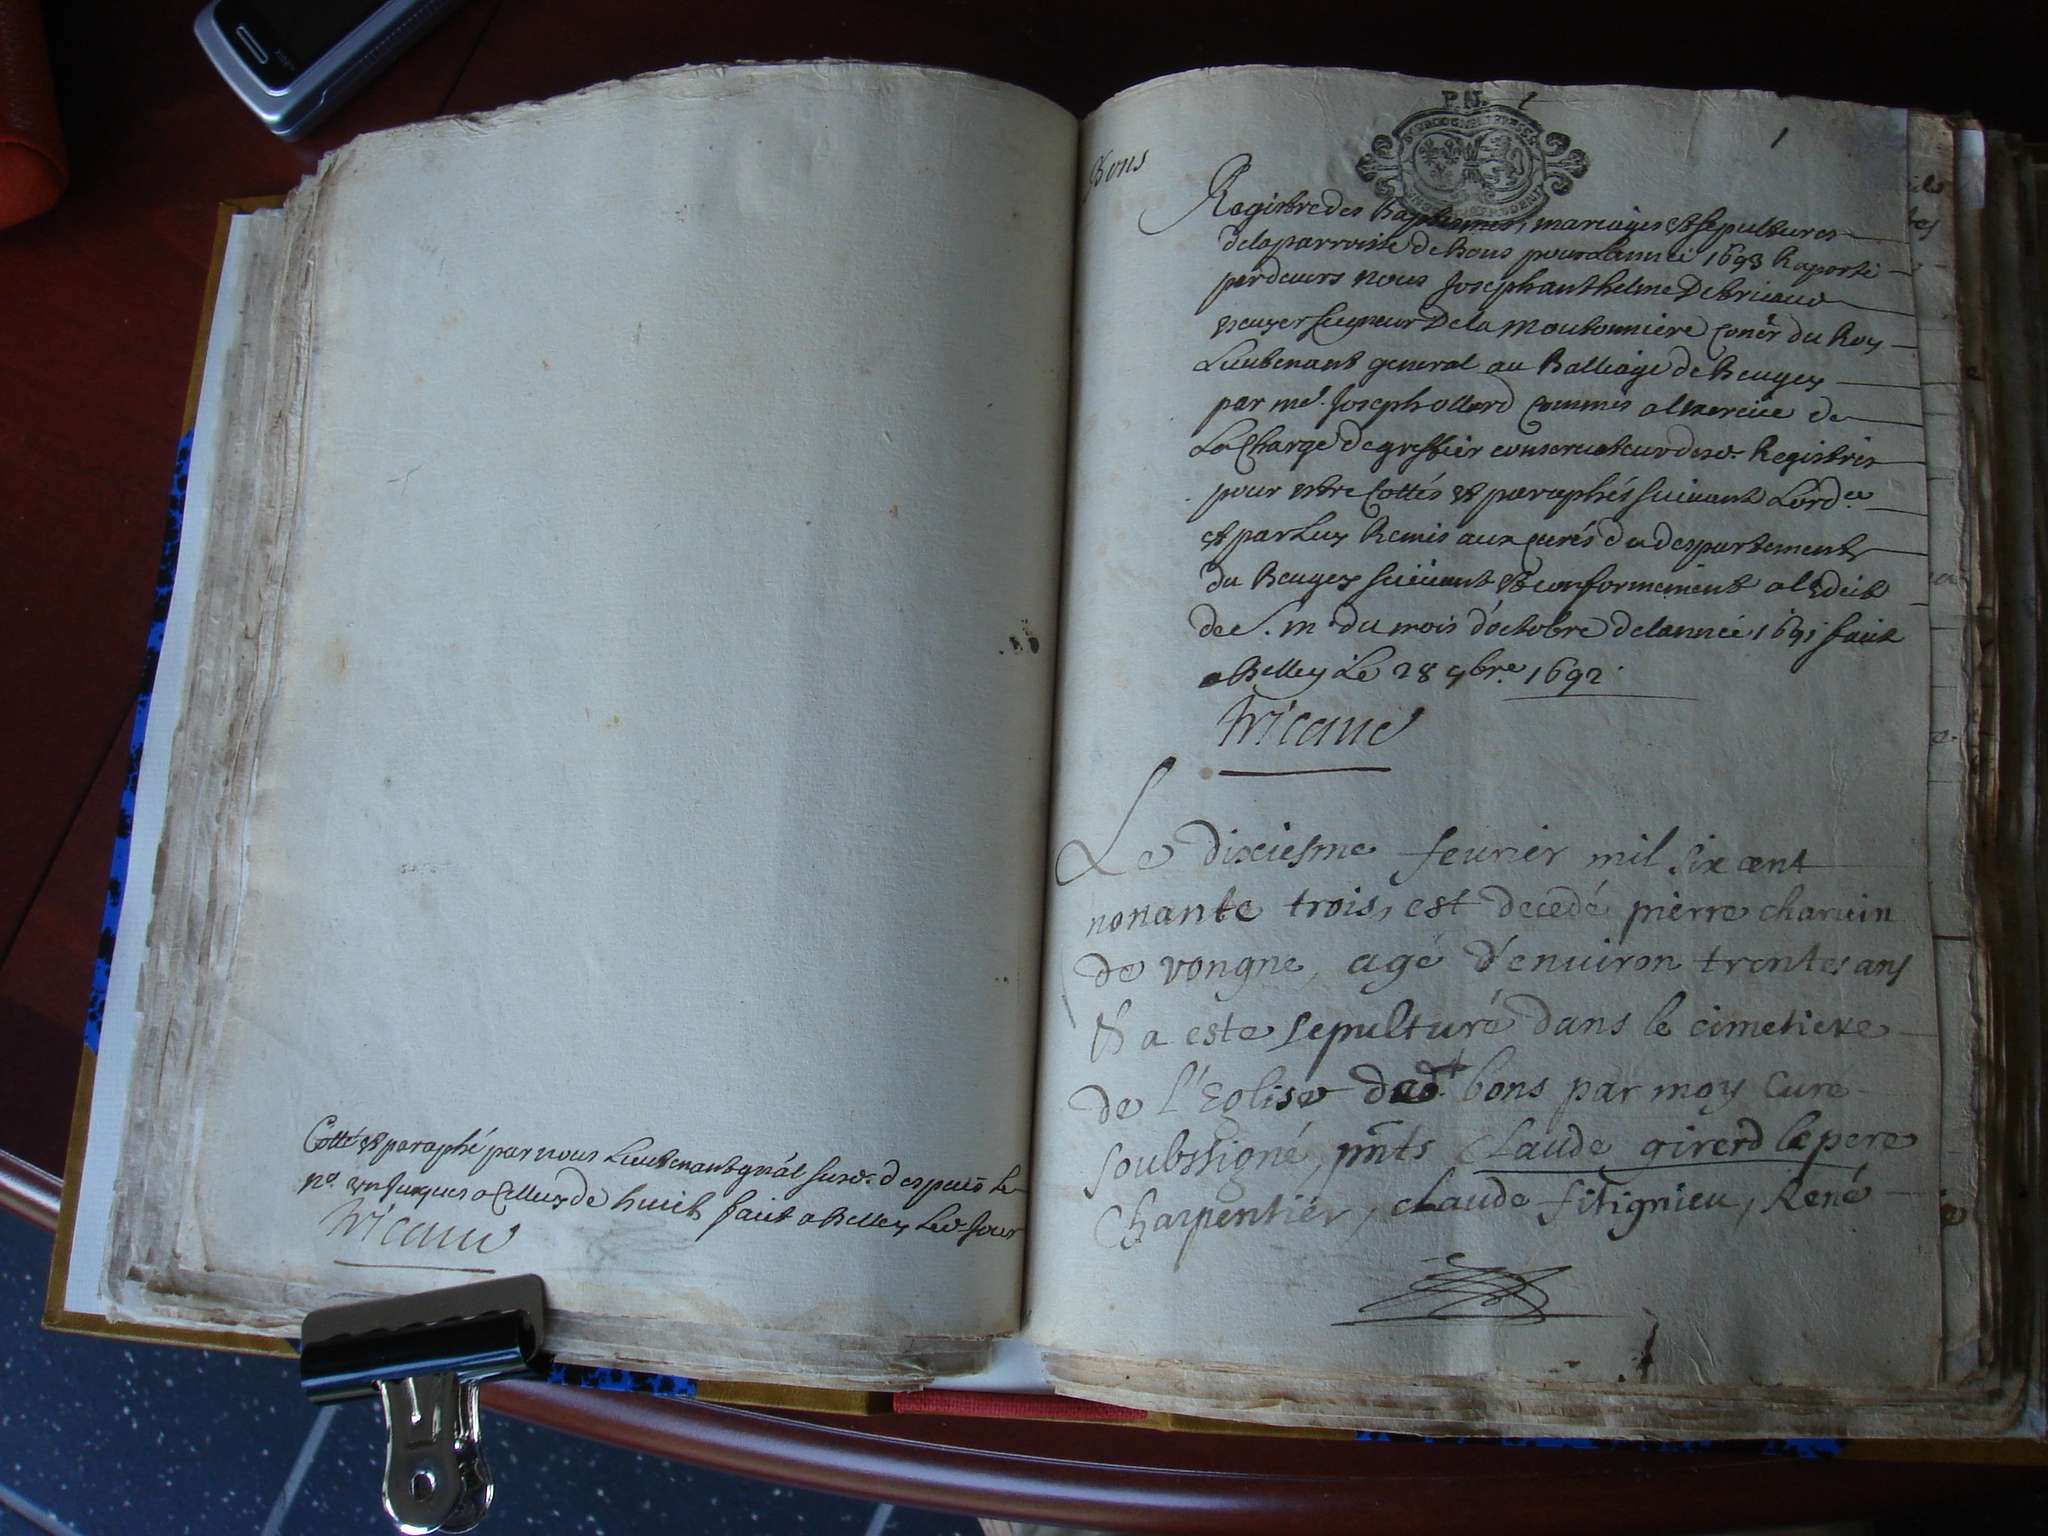 Cotté et paraphé par nous Lieutenant gnãl susd. despuis le
no. un jusques a celluy de huict faict a Belley led. jour
Tricaud
P.N. 1
1
Bons
Registre des Baptesmes, mariages et sepultures
de la parroisse de Bons pour L'année 1693 Raporté
par devers nous Joseph anthelme De tricaud
escuyer seigneur De la moutonniere Coner du Roy
Lieutenant general au Balliage de Beugey
par me. Joseph ollard commis a l'exercice de
La Charge de greffier conservateur desd. Registres
pour estre Cottés et paraphés suivant L'ordce
et par Luy Remis aux curés du despartement
du Beugey suivant et conformement a l'Edict
de S. m. du mois d'octobre de l'année 1691 faict
a Belley Le 28 9bre. 1692.
Tricaud
Le dixiesme feurier mil six cent
nonante trois, est decedé pierre charuin
de vongne, agé d'enuiron trentes ans
Et a este sepulturé dans le cimetiere
de l'Eglise de bons par moy Curé
soubssigné, pnts Claude girerd le pere
Charpentier, claude fitignieu, René